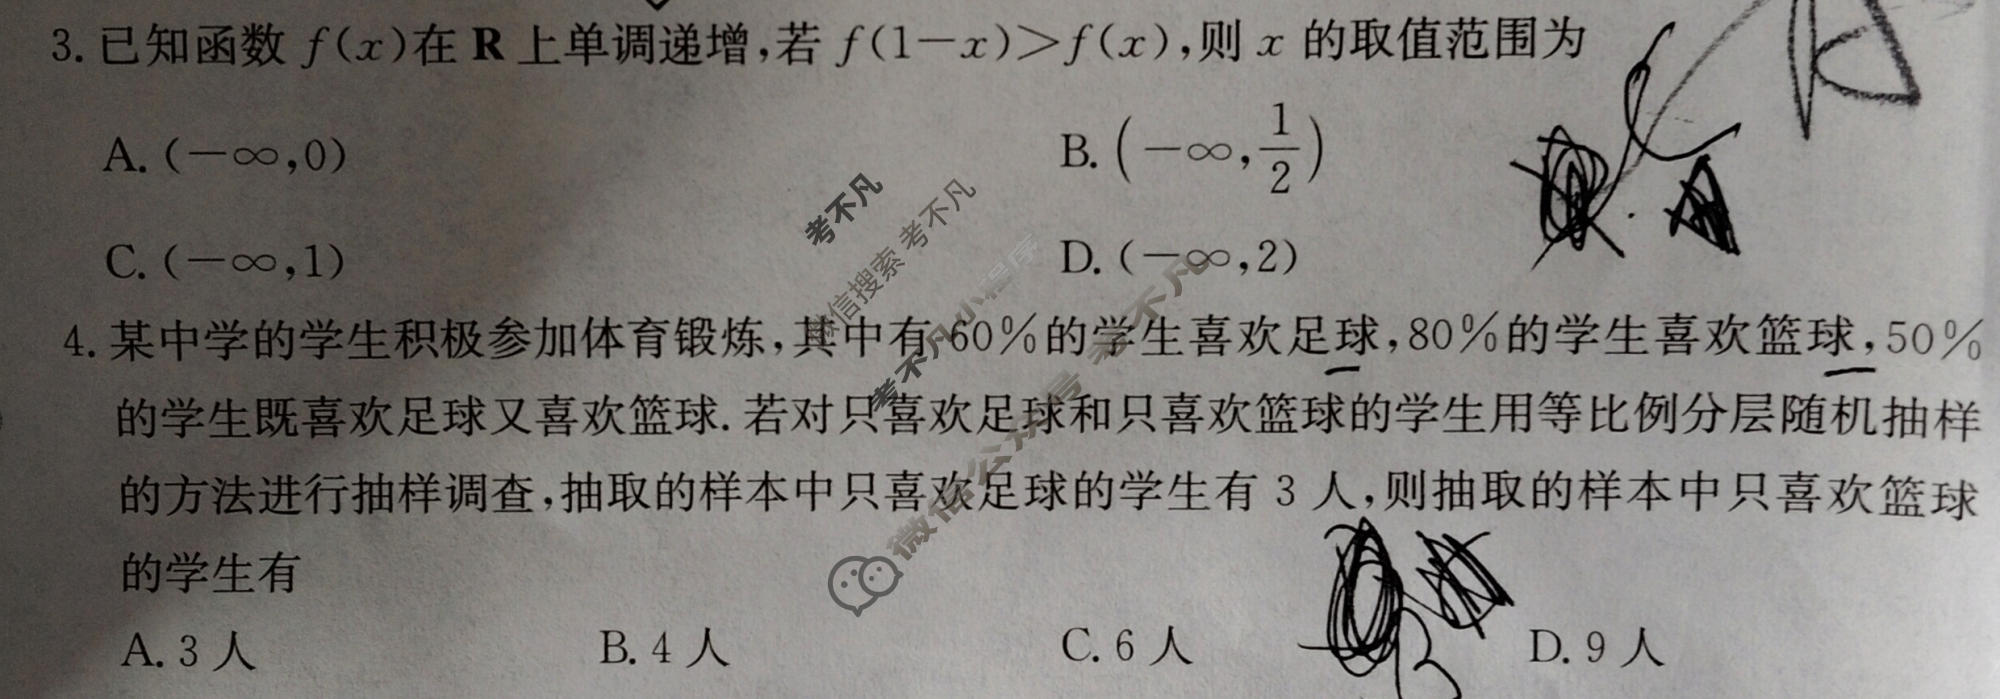 3. 已知函数 f(x)在 R 上单调递增,若 f(1－x)＞f(x),则 x 的取值范围为
A. (－∞,0)
B. (－∞,1/2)
C. (－∞,1)
D. (－∞,2)
4. 某中学的学生积极参加体育锻炼,其中有 60%的学生喜欢足球,80%的学生喜欢篮球,50%
的学生既喜欢足球又喜欢篮球. 若对只喜欢足球和只喜欢篮球的学生用等比例分层随机抽样
的方法进行抽样调查,抽取的样本中只喜欢足球的学生有 3 人,则抽取的样本中只喜欢篮球
的学生有
A. 3 人
B. 4 人
C. 6 人
D. 9 人
考不凡
微信搜索 考不凡
考不凡小程序
微信公众号 考不凡